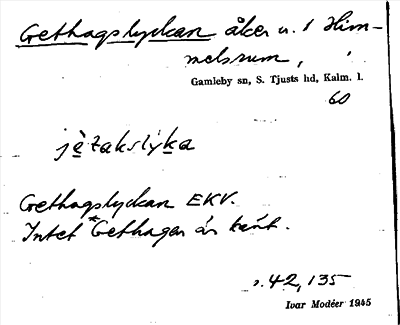 Gethagslyckan åker u. 1 Him-
melsrum,
Gamleby sn, S. Tjusts hd, Kalm. l.
60
jètakslỳka
Gethagslyckan EKV.
Intet *Gethagen är känt.
s. 42, 135
Ivar Modéer 1945